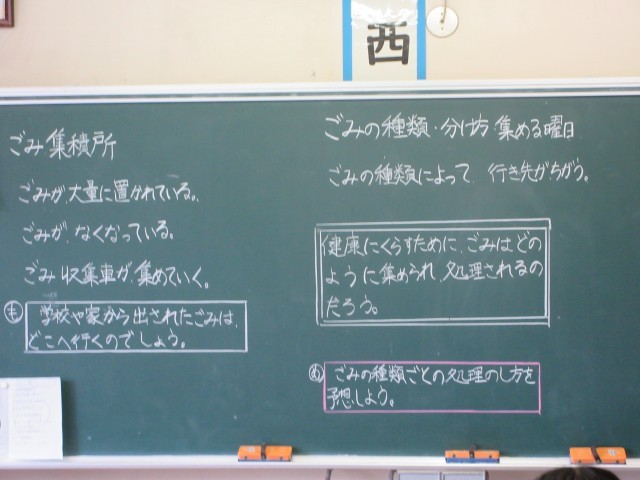 西
ごみ集積所
ごみが、大量に置かれている。
ごみが、なくなっている。
ごみ収集車が、集めていく。
も 学校や家から出されたごみは、
どこへ行くのでしょう。
ごみの種類・分け方 集める曜日
ごみの種類によって、行き先がちがう。
健康にくらすために、ごみはどの
ように集められ、処理されるの
だろう。
め ごみの種類ごとの処理のし方を
予想しよう。